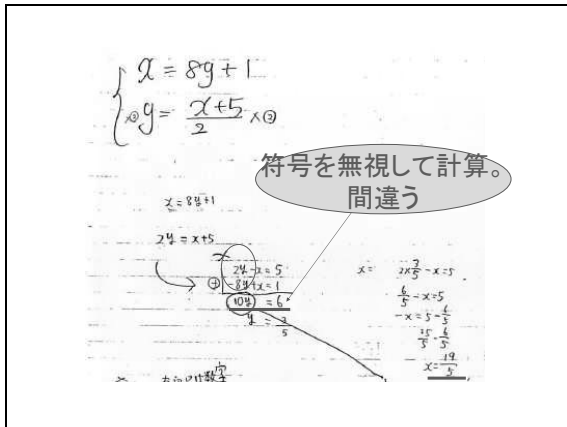 x = 8y + 1
×② y = x+5/2 ×②
符号を無視して計算。
間違う
x = 8y+1
2y = x+5
2y - x = 5
⊕ -8y + x = 1
10y = 6
y = 3/5
x = 2×3/5 - x = 5
6/5 - x = 5
-x = 5 - 6/5
25/5 - 6/5
x = 19/5